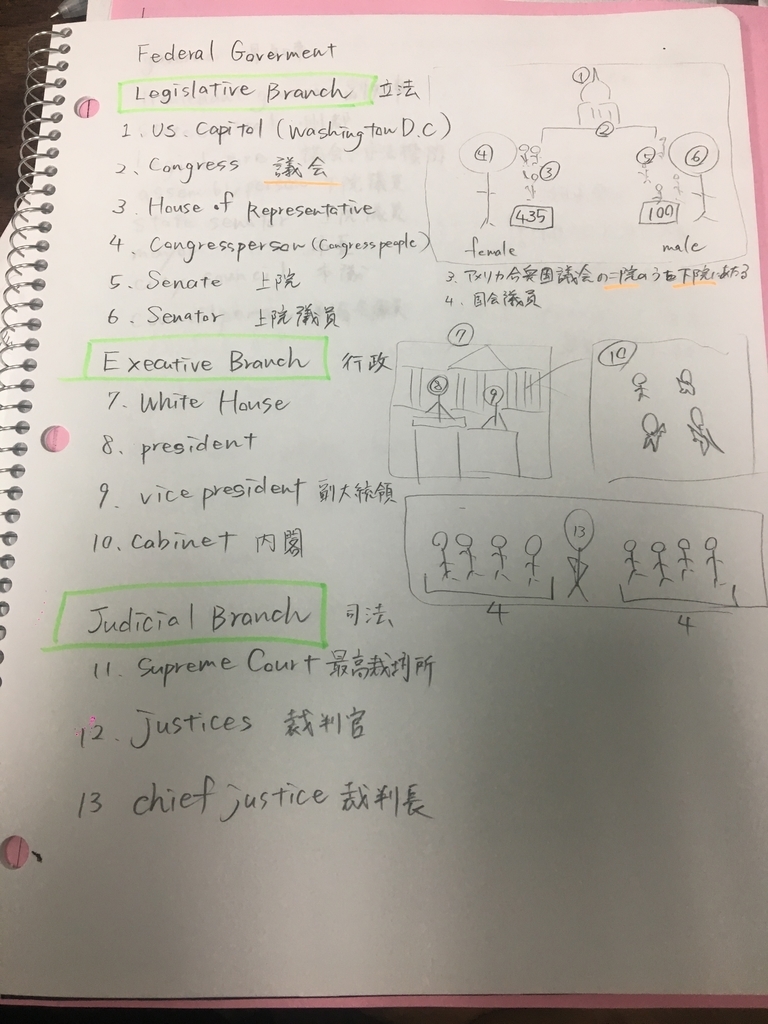 Federal Goverment
Legislative Branch 立法
1. US. Capitol (Washington D.C)
2. Congress 議会
3. House of Representative
4. Congressperson (Congress people)
5. Senate 上院
6. Senator 上院議員
① 
②
④ ③ ⑤ ⑥
435 100
female male
3. アメリカ合衆国議会の二院のうち下院にあたる
4. 国会議員
Executive Branch 行政
7. White House
8. president
9. vice president 副大統領
10. Cabinet 内閣
⑦ ⑩
⑧ ⑨
13
4 4
Judicial Branch 司法
11. Supreme Court 最高裁判所
12. justices 裁判官
13 chief justice 裁判長